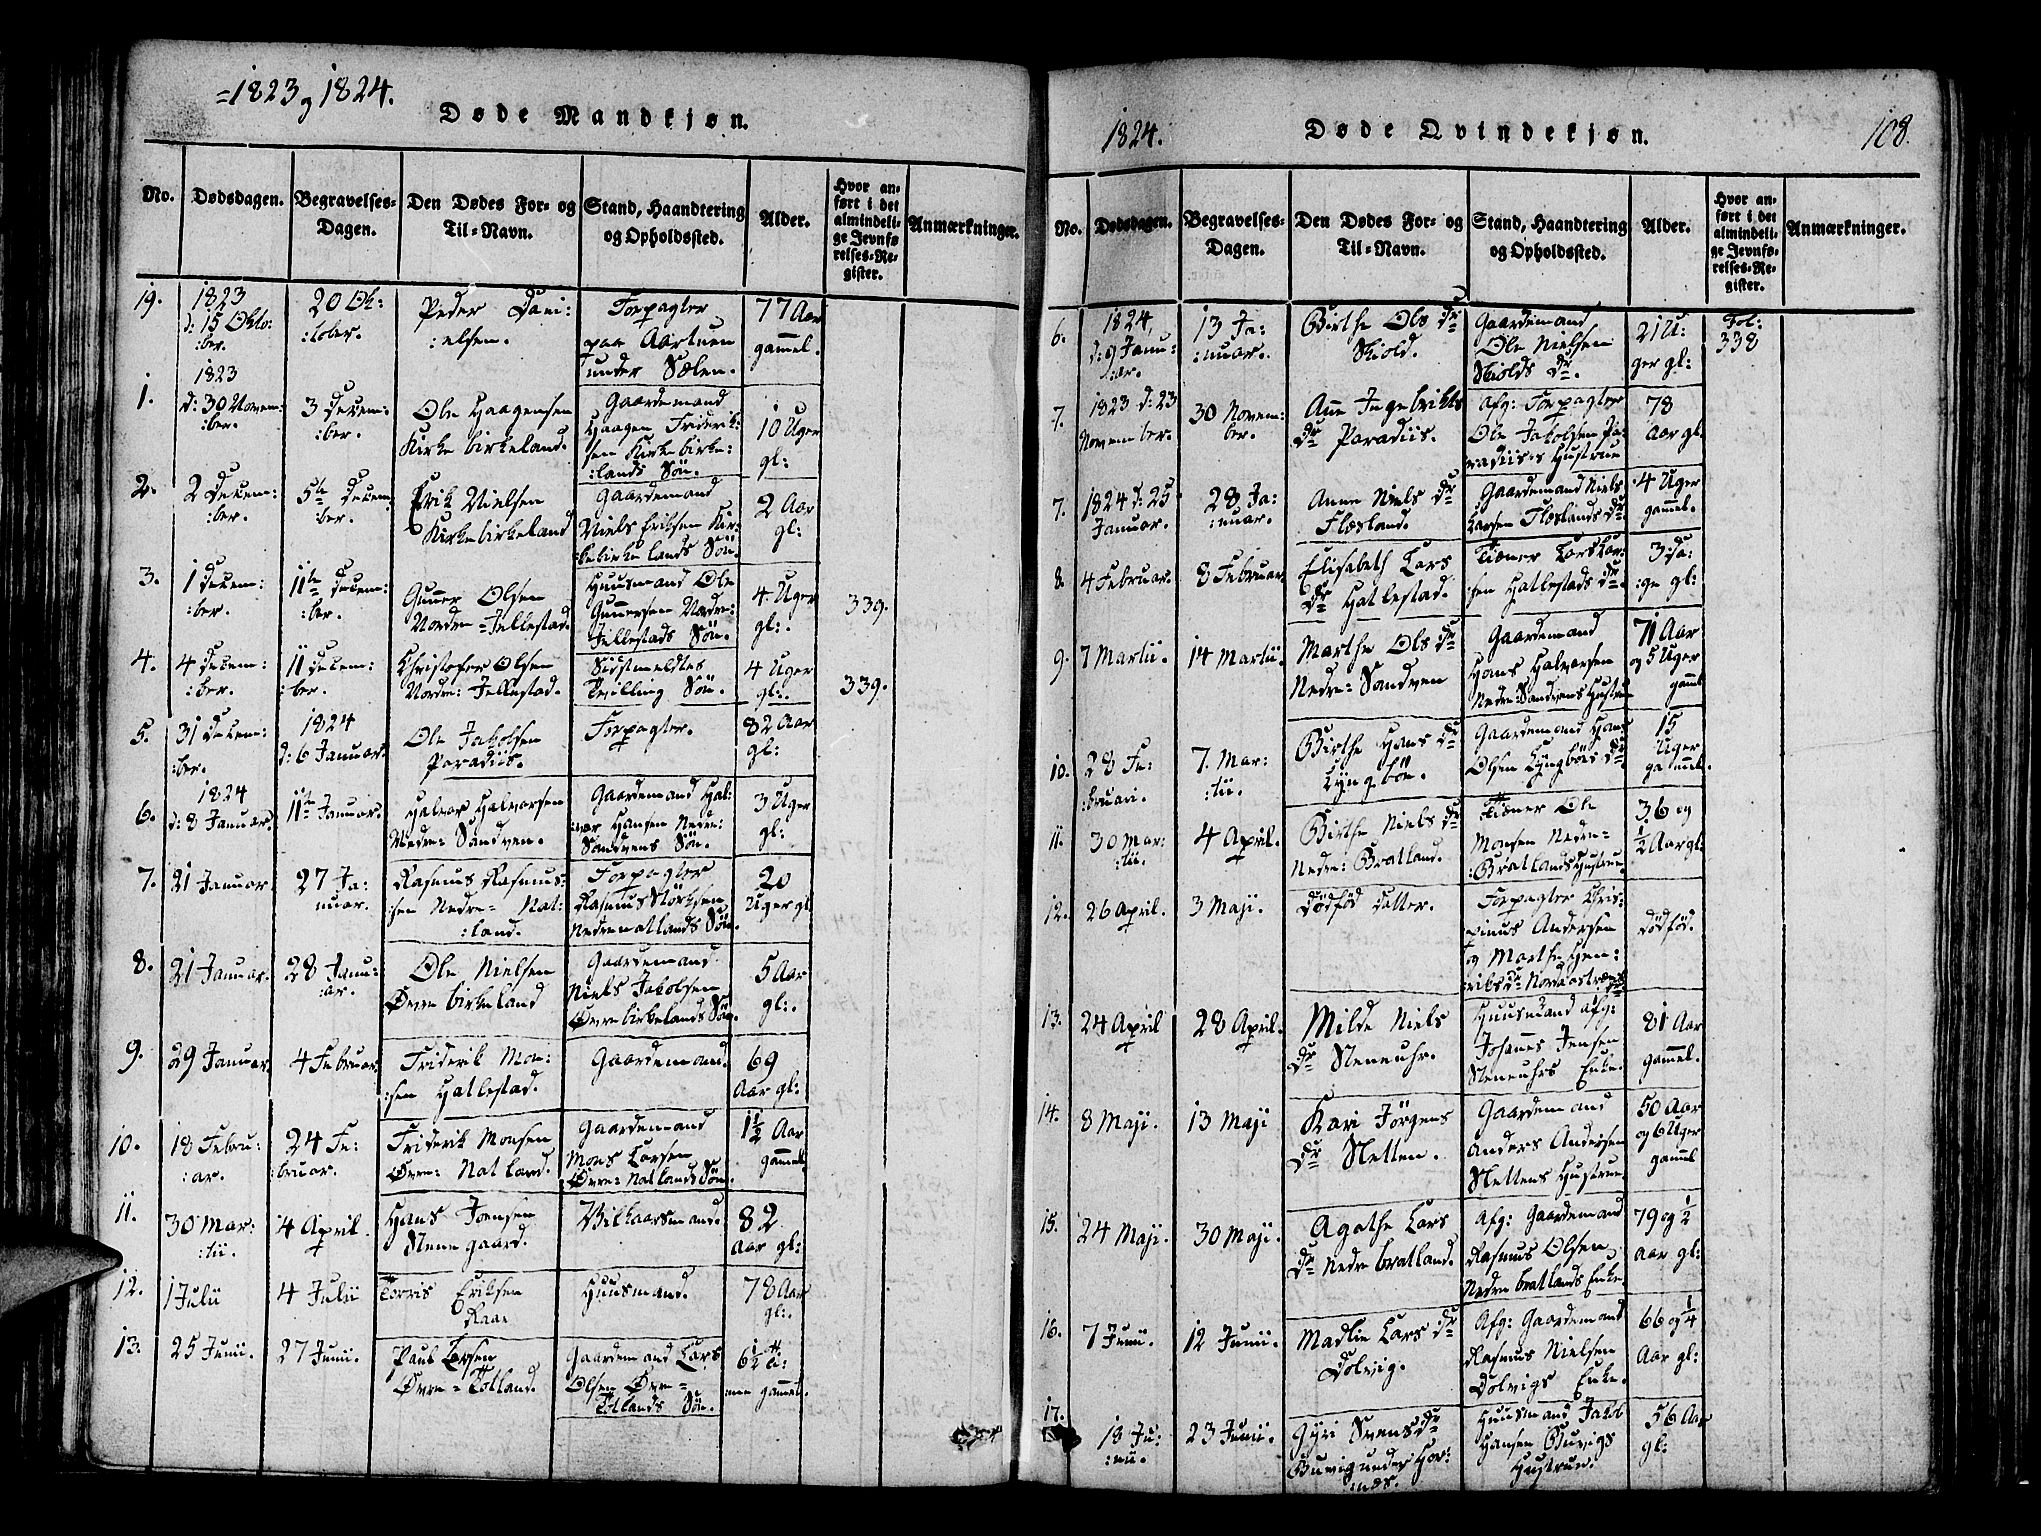 =1823 og 1824.
Døde Mandkjøn.
No.
Dødsdagen.
Begravelses-
Dagen.
Den Dødes For- og
Til-Navn.
Stand, Haandtering
og Opholdssted.
Alder.
Hvor an-
ført i det
almindeli-
ge Jevnfø-
relses-Re-
gister.
Anmærkninger.
19.
1823
d: 15 Okto:
:ber.
20 Ok:
:tober.
Peder Dani:
:elsen.
Forpagter
paa Aartuen
under Sælen.
77 Aar
gammel.
1.
1823
d: 30 Novem:
:ber.
3 Decem:
:ber.
Ole Haagensen
Kirkebirkeland.
Gaardemand
Haagen Friderik:
:sen Kirkebirke:
:lands Søn.
10 Uger
gl:
2.
2 Decem:
:ber.
5te Decem:
:ber.
Erik Nielsen
Kirkebirkeland
Gaardemand
Niels Eriksen Kir:
:kebirkelands Søn.
2 Aar
gl:
3.
1 Decem:
:ber.
11te Decem:
:ber.
Gunner Olsen
Nordre=Jellestad.
Huusmand Ole
Gunnersen Nordre:
Jellestads Søn.
4 Uger
gl:.
339.
4.
4 Decem:
:ber.
11 Decem:
:ber.
Christofer Olsen
Nordre: Jellestad.
Sidstmeldtes
Tvilling Søn.
4 Uger
gl:.
339.
5.
31 Decem:
:ber.
1824
d: 6 Januar.
Ole Jakobsen
Paradiis.
Forpagter.
82 Aar
gl:
6.
1824
d: 8 Januar.
11te Januar.
Halvor Halvorsen
Nedre: Sandven.
Gaardemand Hal:
:vor Hansen Nedre:
Sandvens Søn.
3 Uger
gl:.
7.
21 Januar
27 Ja:
:nuar.
Rasmus Rasmus:
:sen Nedre= Nat:
:land.
Forpagter
Rasmus Størksen
Nedrenatlands Søn.
20
Uger gl
8.
21 Januar.
28 Janu:
:ar.
Ole Nielsen
Øvrebirkeland
Gaardemand
Niels Jakobsen
Øvrebirkelands Søn.
5 Aar
gl:.
9.
29 Januar.
4 Februar.
Friderik Mon=
:sen Hatlestad.
Gaardemand.
69
Aar gl:
10.
18 Febru:
:ar.
24 Fe:
:bruar.
Friderik Monsen
Øvre: Natland.
Gaardemand
Mons Larsen
Øvre: Natlands Søn.
1½ Aar
gammel
11.
30 Mar:
:tii.
4 April.
Hans Joensen
Stenegaard.
Vilkaarsmand.
82
Aar gl:
12.
1 Julii
4 Julii
Torris Eriksen
Raae
Huusmand.
78 Aar
gl:.
13.
25 Junii.
27 Junii.
Paul Larsen
Øvre=Totland.
Gaardemand Lars
Olsen Øvre=
Totlands Søn.
gammel.
1824.
Døde Qvindekjøn.
108.
No.
Dødsdagen.
Begravelses-
Dagen.
Den Dødes For- og
Til-Navn.
Stand, Haandtering
og Opholdssted.
Alder.
Hvor an-
ført i det
almindeli-
ge Jevnfø-
relses-Re-
gister.
Anmærkninger.
6.
1824,
d: 9 Janu:
:ar.
13 Ja:
:nuar.
Birthe Ols Dr
Skiold.
Gaardemand
Ole Nielsen
Skiolds Dr.
21 U:
ger gl:
Fol:
338
7.
1823 d: 23
November.
30 Novem:
ber.
Ane Ingebrikts
Dr Paradiis.
Afg: Forpagter
Ole Jakobsen Pa:
radiis's Hustrue
78
Aar gl.
7.
1824 d. 25
Januar.
28 Ja:
:nuar.
Anne Niels Dr
Flæsland.
Gaardemand Niels
Larsen Flæslands Dr
4 Uger
gammel.
8.
4 Februar.
8 Februar
Elisabeth Lars
Dr Hatlestad.
Tiener Lars Lar:
:sen Hatlestads Dr.
3 Da:
:ge gl:
9.
7 Martii.
14 Martii.
Marthe Ols Dr
Nedre: Sandven
Gaardemand
Hans Halvorsen
Nedre:Sandvens Hustrue
71 Aar
og 5 Uger
gammel
10.
28 Fe:
:bruari.
7. Mar:
:tii.
Birthe Hans Dr
Lyngbøe.
Gaardemand Hans
Olsen Lyngbøes Dr.
15
Uger
gammel.
11.
30 Mar:
:tii.
4 April.
Birthe Niels Dr
Nedre: Bratland.
Tiener Ole
Monsen Nedre=
:Bratlands Hustrue.
36 og
½ Aar gl:
12.
26 April.
3 Maji.
Dødfød Datter.
Forpagter Chris:
pinus Andersen
og Marthe Hen:
:riks Dr
dødfød.
13.
24 April
28 April.
Milde Niels
Dr Steneuhr.
Huusmand afg:
Johannes Jensen
Steneuhrs Enke.
81 Aar
gammel.
14.
8 Maji.
13 Maji
Kari Jörgens
Dr Sletten.
Gaardemand
Anders Andersen
Slettens Hustrue.
50 Aar
og 6 Uger
gammel
15.
24 Maji.
30 Maji.
Agathe Lars
Dr Nedrebratland.
Afg: Gaardemand
Rasmus Olsen
Nedrebratlands Enke.
79 og ½
Aar gl:
16.
7 Junii.
12 Junii.
Madlie Lars Dr
Dolvig.
Afg: Gaardemand
Rasmus Nielsen
Dolvigs Enke.
66 og ¼
Aar gl:
17.
18 Ju:
:nii.
23 Junii.
Gyri Svens Dr
Buvig under Hor:
:nes.
Huusmand Jakob
Hansen Buvigs
Hustrue.
56 Aar
gl: